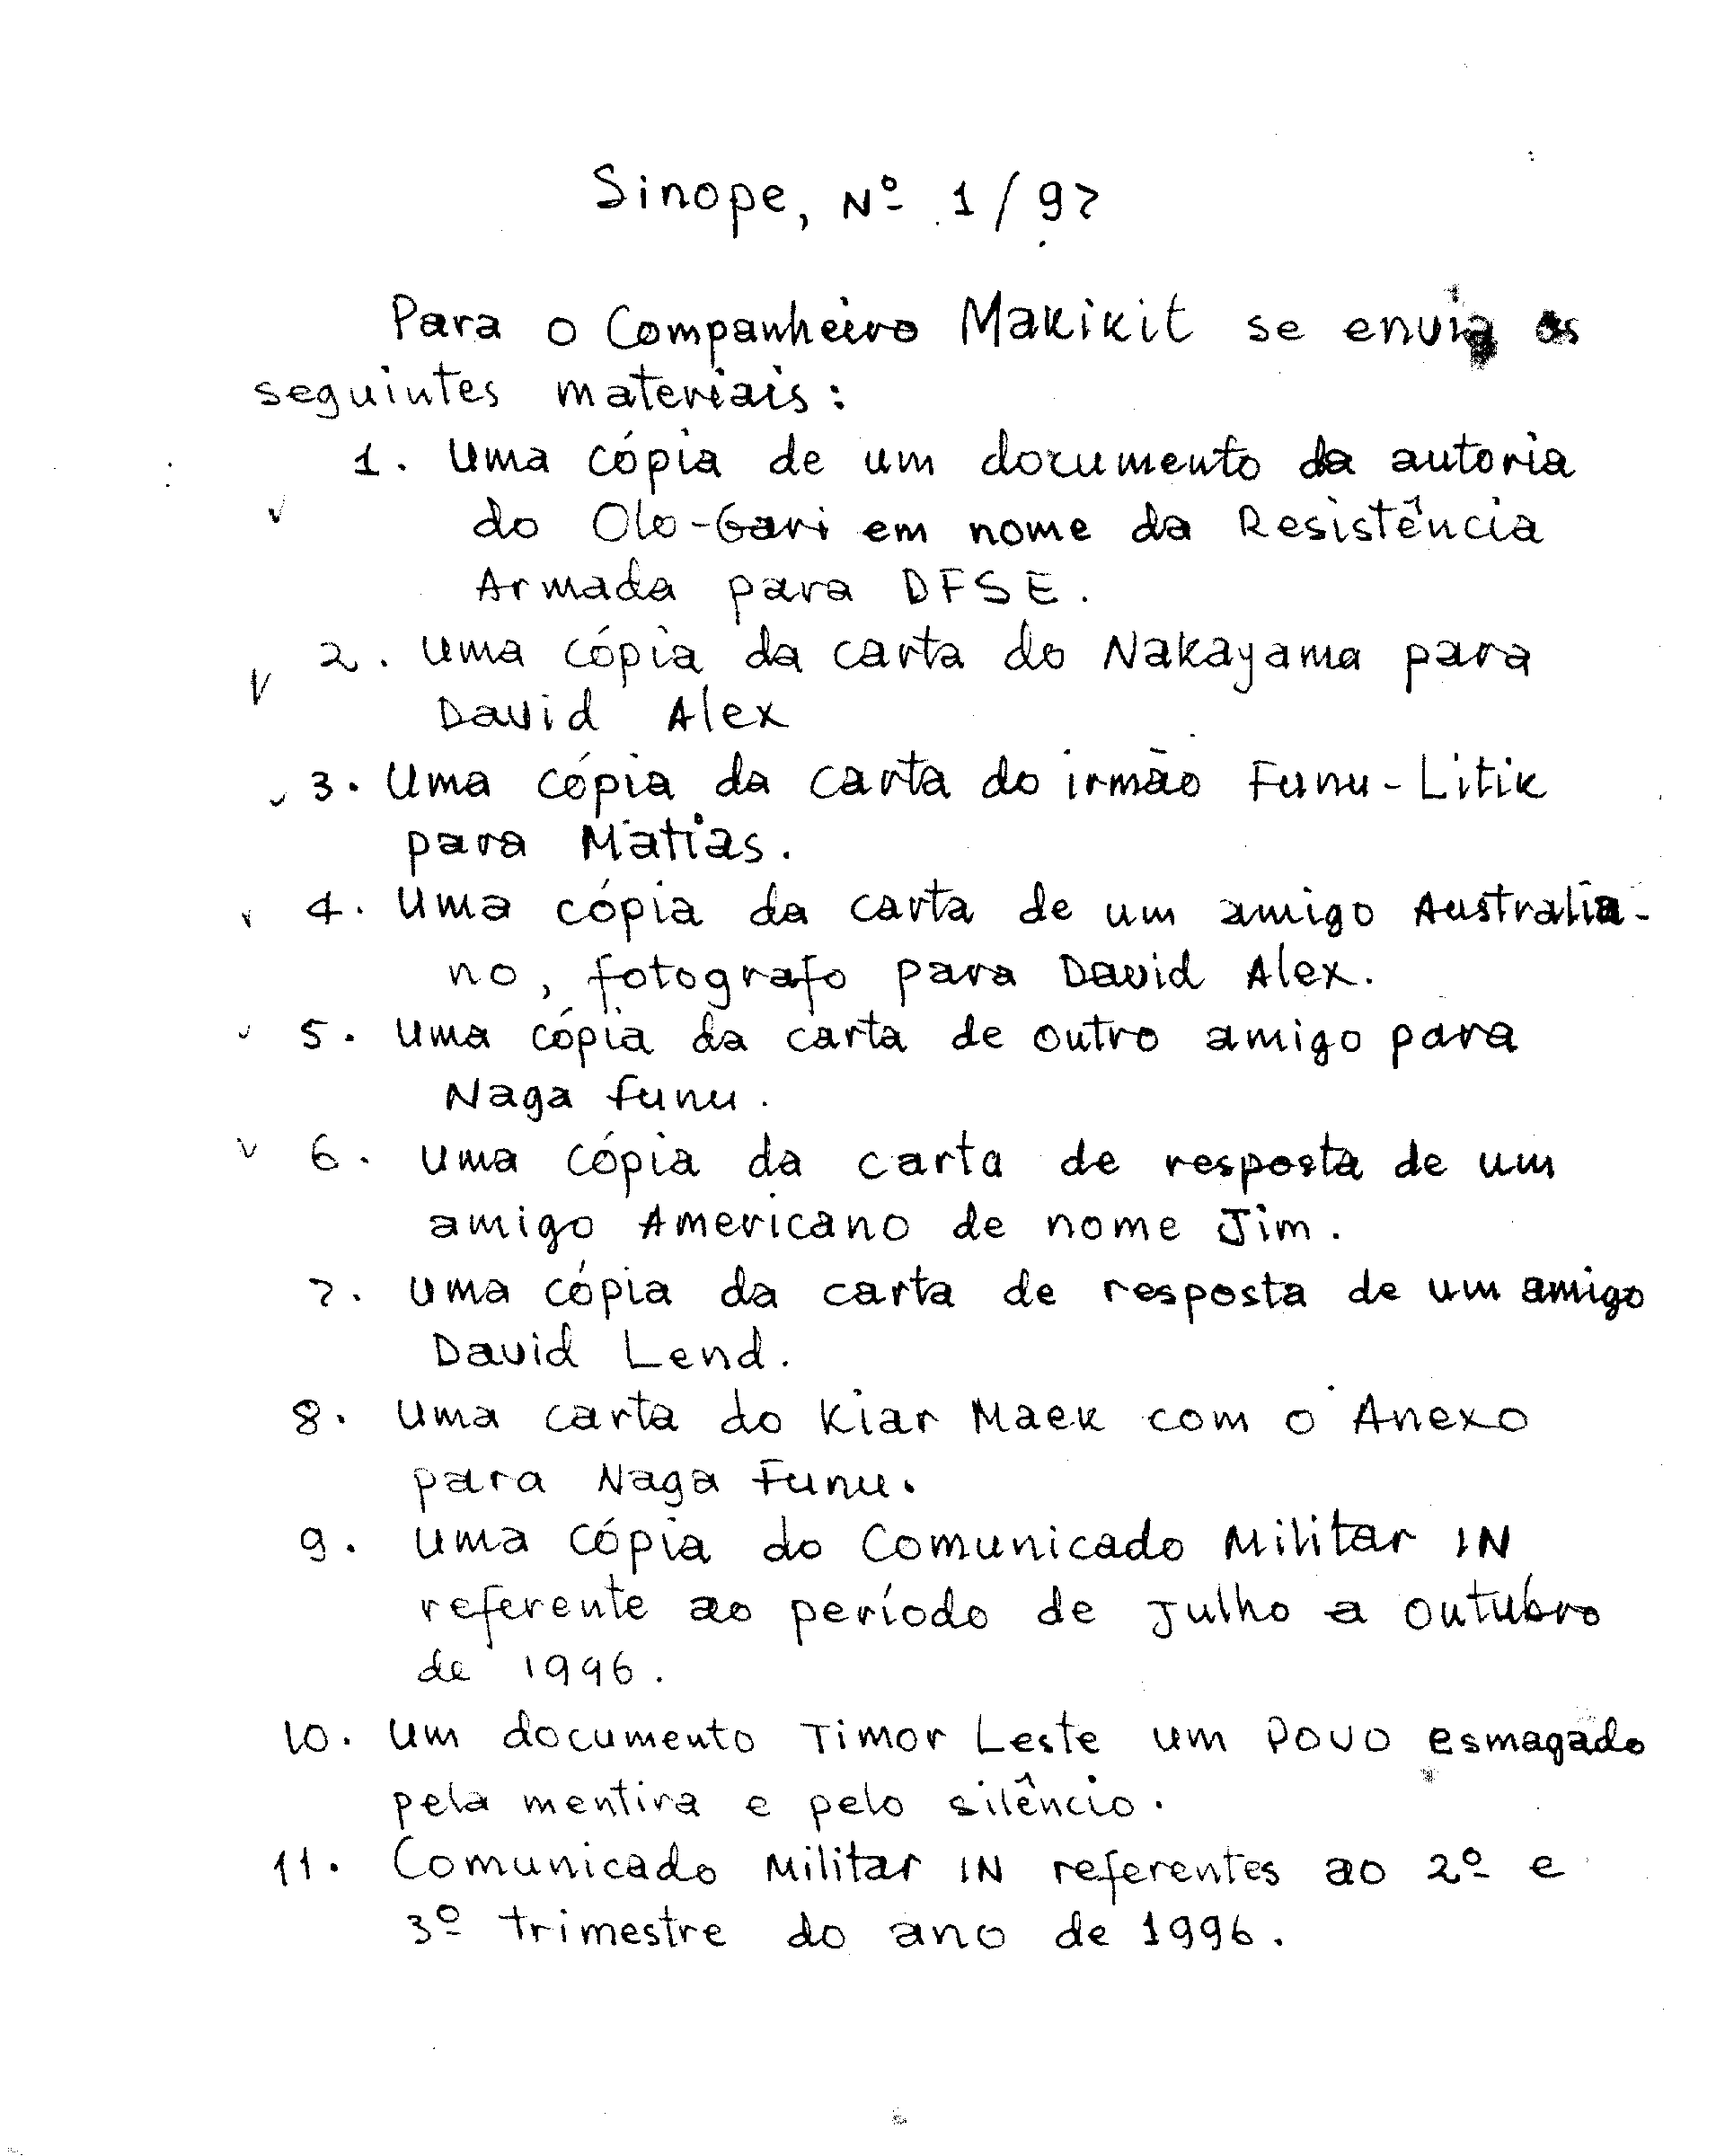 Sinope, Nº 1/97
Para o Companheiro Makikit se envia os
seguintes materiais:
1. Uma cópia de um documento da autoria
do Olo-Gari em nome da Resistência
Armada para DFSE.
2. Uma cópia da carta do Nakayama para
David Alex
3. Uma cópia da carta do irmão Funu-Litik
para Matias.
4. Uma cópia da carta de um amigo Australia-
no, fotografo para David Alex.
5. Uma cópia da carta de outro amigo para
Naga funu.
6. Uma cópia da carta de resposta de um
amigo Americano de nome Jim.
7. Uma cópia da carta de resposta de um amigo
David Lend.
8. Uma carta do Kiar Maek com o Anexo
para Naga Funu.
9. Uma cópia do Comunicado Militar IN
referente ao período de Julho a Outubro
de 1996.
10. Um documento Timor Leste um Povo esmagado
pela mentira e pelo silêncio.
11. Comunicado Militar IN referentes ao 2º e
3º trimestre do ano de 1996.